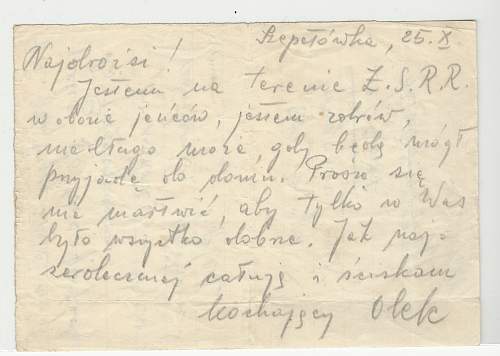 Szepetówka, 25.X
Najdrożsi!
Jestem na terenie Z.S.R.R.
w obozie jeńców, jestem zdrów,
niedługo może gdy będę mógł
przyjadę do domu. Proszę się
nie martwić, aby tylko u Was
było wszystko dobrze. Jak naj-
serdeczniej całuję i ściskam
kochający Olek